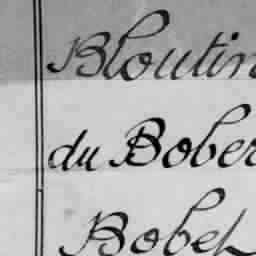 Bloutin
du Bober
Bobep